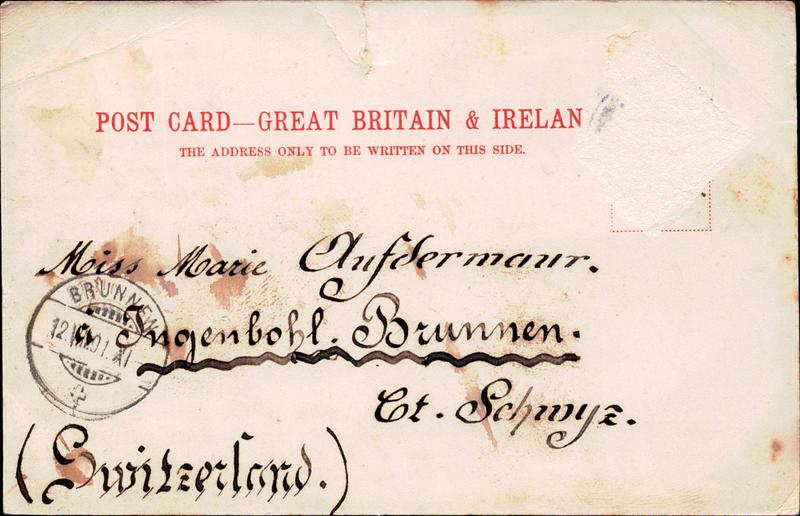 POST CARD—GREAT BRITAIN & IRELAN
THE ADDRESS ONLY TO BE WRITTEN ON THIS SIDE.
Miss Marie Aufdermaur.
à Ingenbohl. Brunnen.
Ct. Schwyz.
(Switzerland.)
BRUNNEN